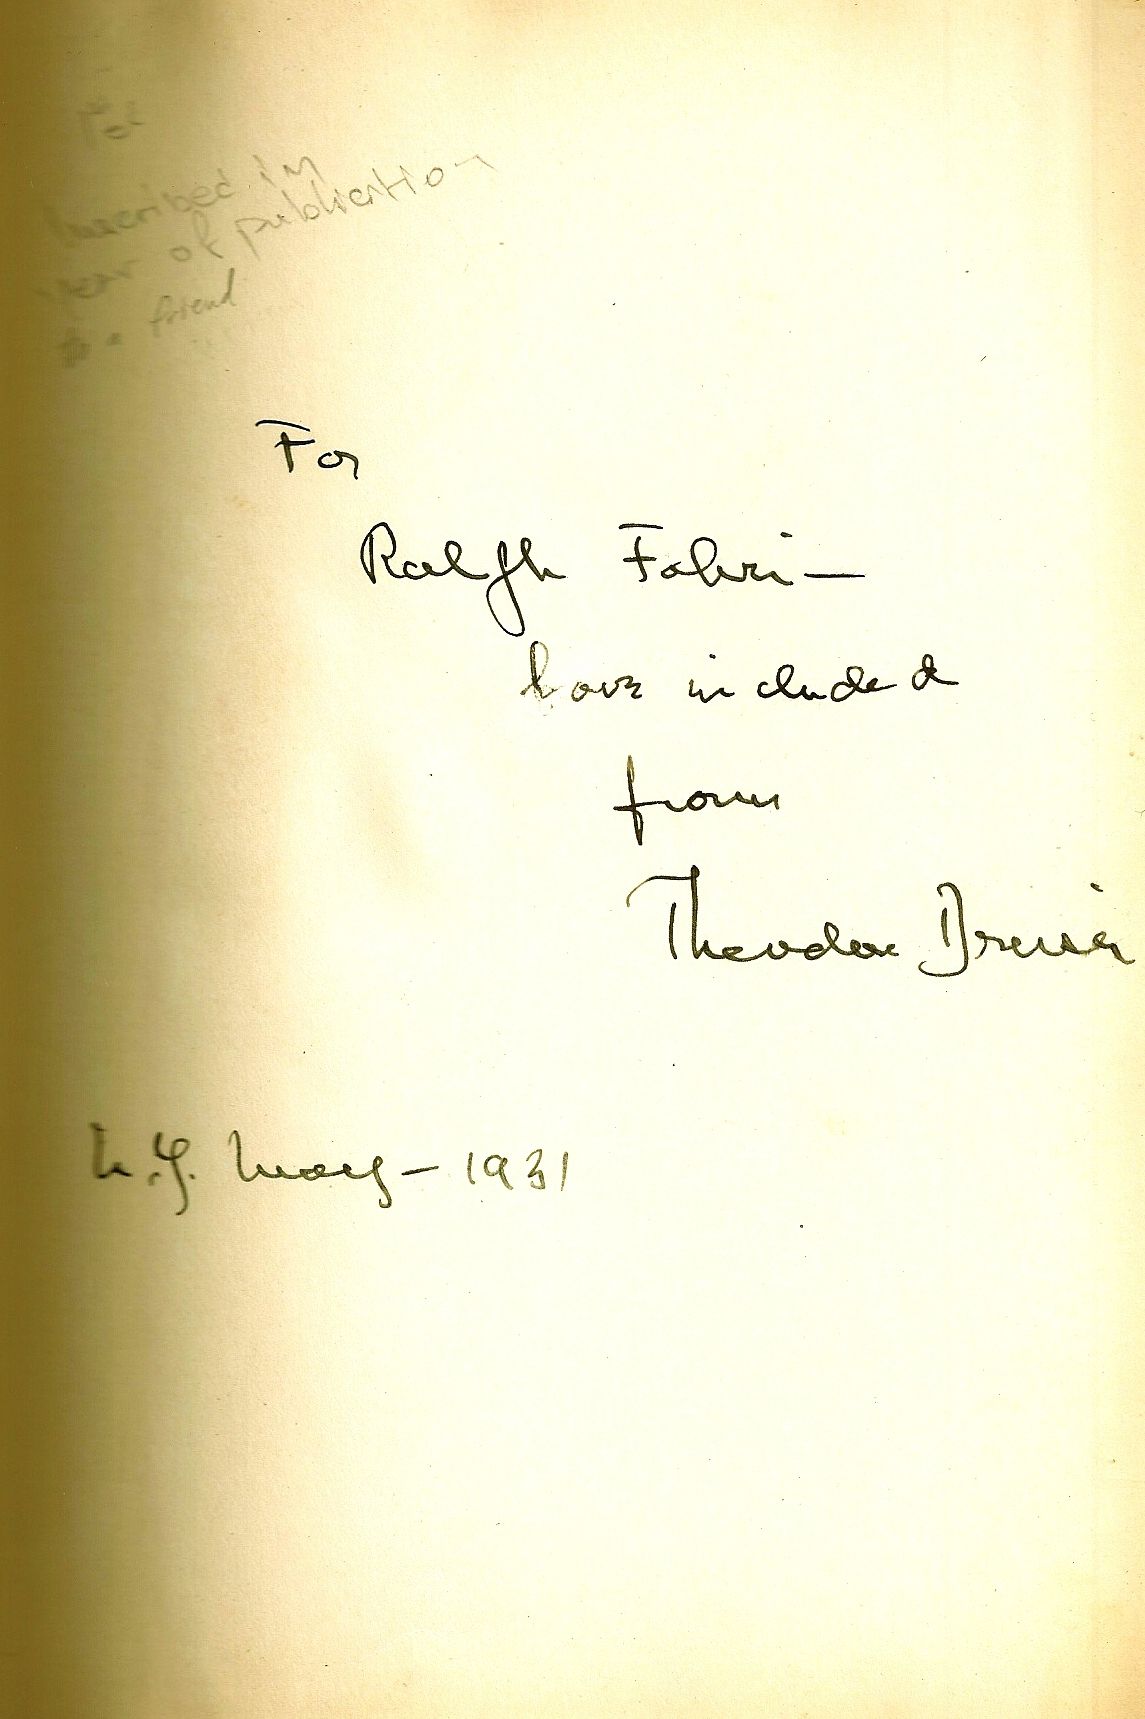 Inscribed in
year of publication
to a friend
For
Ralph Fabri—
love included
from
Theodore Dreiser
N.Y. May – 1931